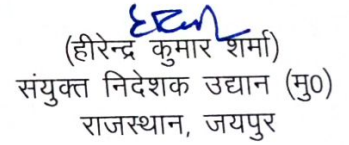 (हीरेन्द्र कुमार शर्मा)
संयुक्त निदेशक उद्यान (मु0)
राजस्थान, जयपुर